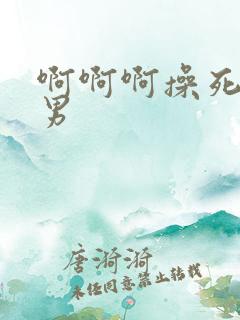 啊啊啊操死
男
唐漪漪
未经同意禁止转载